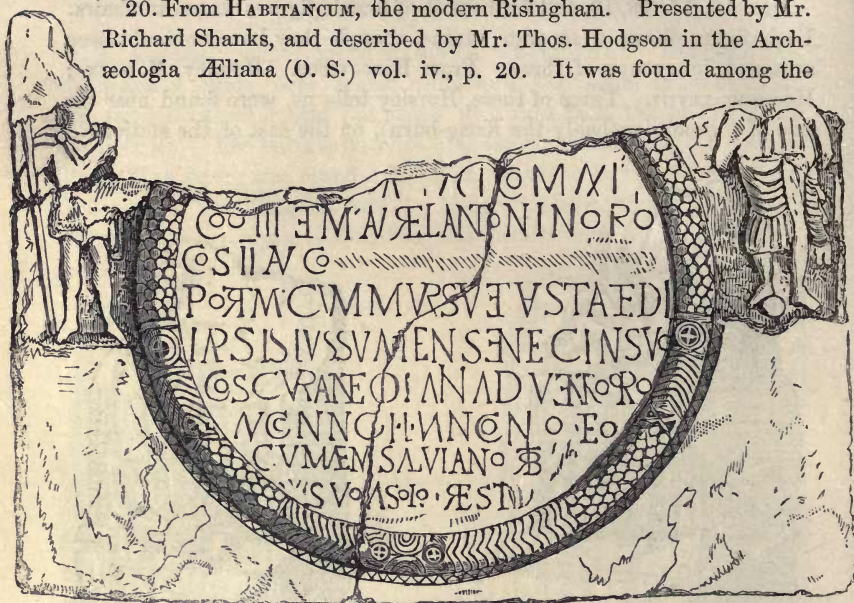 20. From HABITANCUM, the modern Risingham. Presented by Mr.
Richard Shanks, and described by Mr. Thos. Hodgson in the Arch-
æologia Æliana (O. S.) vol. iv., p. 20. It was found among the
CO III ET M AVREL ANTONINO PIO
COS II AVG
PORTAM CVM MVRIS VETVSTATE DI
IVSSV ALFEN SENECINIS VO
COS CVRANTE OCLATINIO ADVENTO PRO
AVGG NN COH I VANGION
CVM AEM SALVIANO TRIB
SVO A SOLO REST